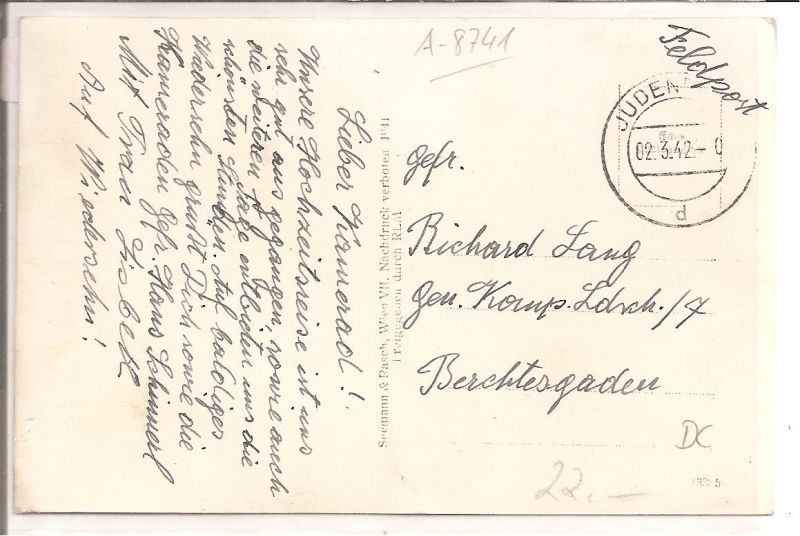 A-8741
Feldpost
JUDEN
02.3.42.-0
d
Lieber Kamerad!
Unsere Hochzeitsreise ist uns
sehr gut aus gegangen, sowie auch
die weiteren Tage entbieten uns die
schönsten Stunden. Auf baldiges
Wiedersehn grüßt Dich sowie die
Kameraden Gefr. Hans
Mit Frau
Auf Wiedersehn!
Seemann & Rasch, Wien VII., Nachdruck verboten
Freigegeben durch RLM
Gefr.
Richard Lang
Gen. Komp. Ldsch./7
Berchtesgaden
DC
22.-